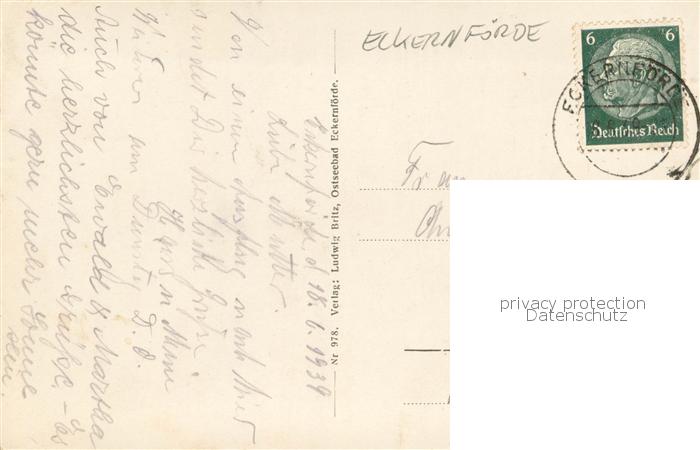 ECKERNFÖRDE
6 6
Deutsches Reich
ECKERNFÖRDE
Nr 978. Verlag: Ludwig Britz, Ostseebad Eckernförde.
Eckernförde d 18. 6. 1939
Liebe Mutter.
Von einem Ausflug
sendet Dir herzliche Grüße
Dienstag
Hans u
Auch von Ewald & Martha
die herzlichsten Grüße, - Es
könnte gern mehr Sonne
sein.
Frau
privacy protection
Datenschutz